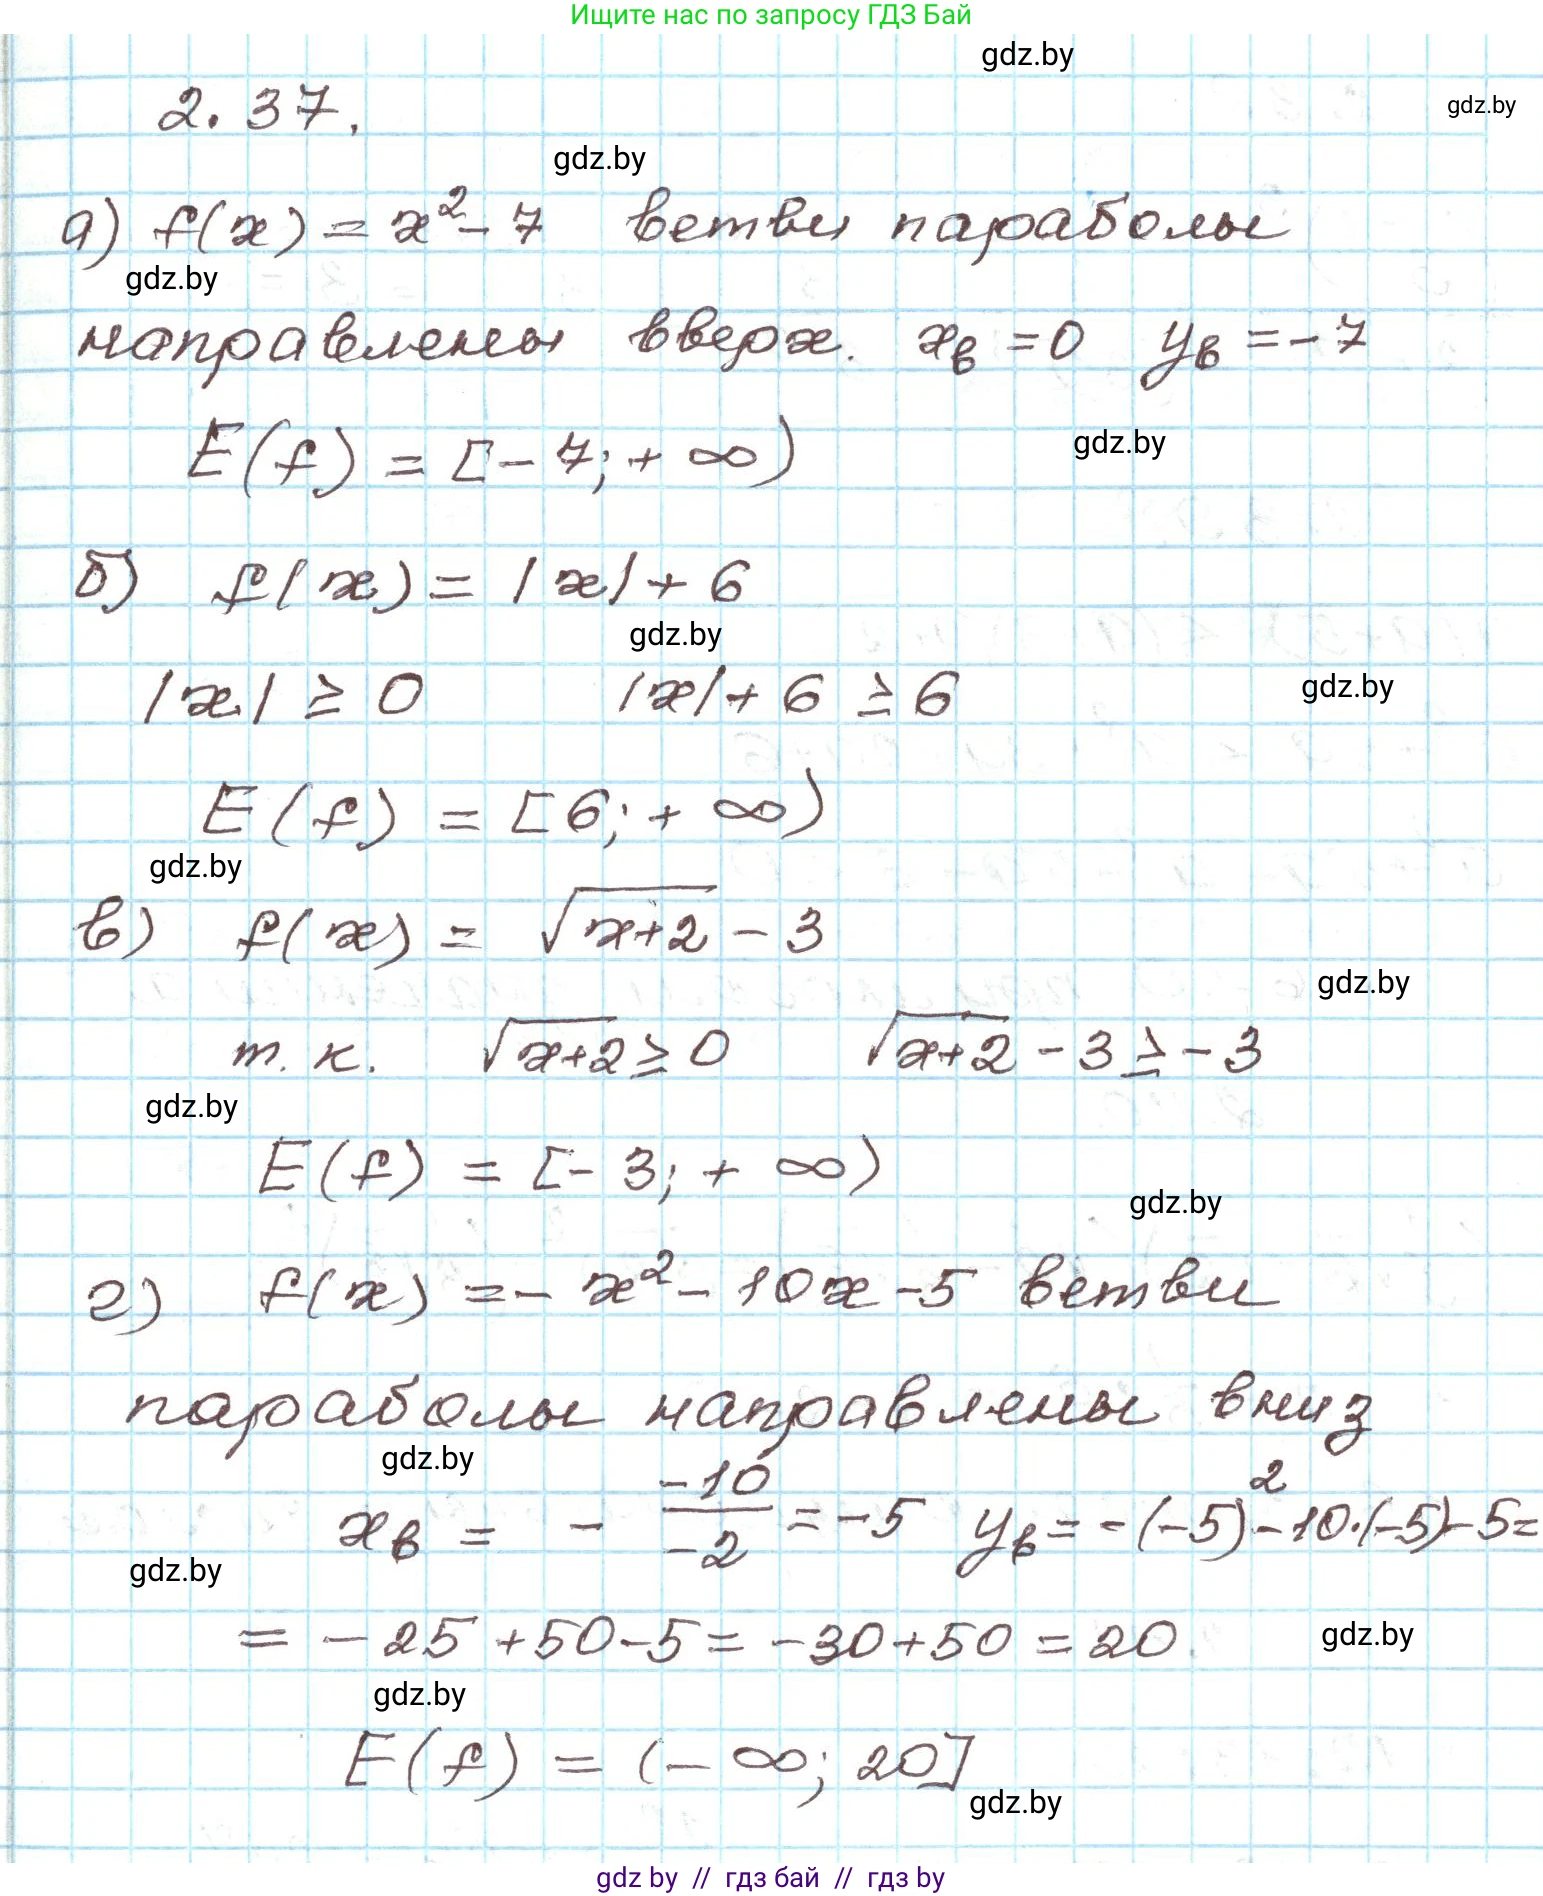 Ищите нас по запросу ГДЗ Бай
gdz.by
gdz.by
2.37.
gdz.by
а) f(x) = x² - 7 ветви параболы
gdz.by
направлены вверх. xв = 0 yв = -7
gdz.by
E(f) = [-7; +∞)
б) f(x) = |x| + 6
gdz.by
|x| ≥ 0 |x| + 6 ≥ 6
gdz.by
E(f) = [6; +∞)
gdz.by
в) f(x) = √(x+2) - 3
gdz.by
т.к. √(x+2) ≥ 0 √(x+2) - 3 ≥ -3
gdz.by
E(f) = [-3; +∞)
gdz.by
г) f(x) = -x² - 10x - 5 ветви
параболы направлены вниз
gdz.by
xв = - -10/-2 = -5 yв = -(-5)² - 10·(-5) - 5 =
gdz.by
= -25 + 50 - 5 = -30 + 50 = 20.
gdz.by
gdz.by
E(f) = (-∞; 20]
gdz.by
gdz by // гдз бай // гдз by